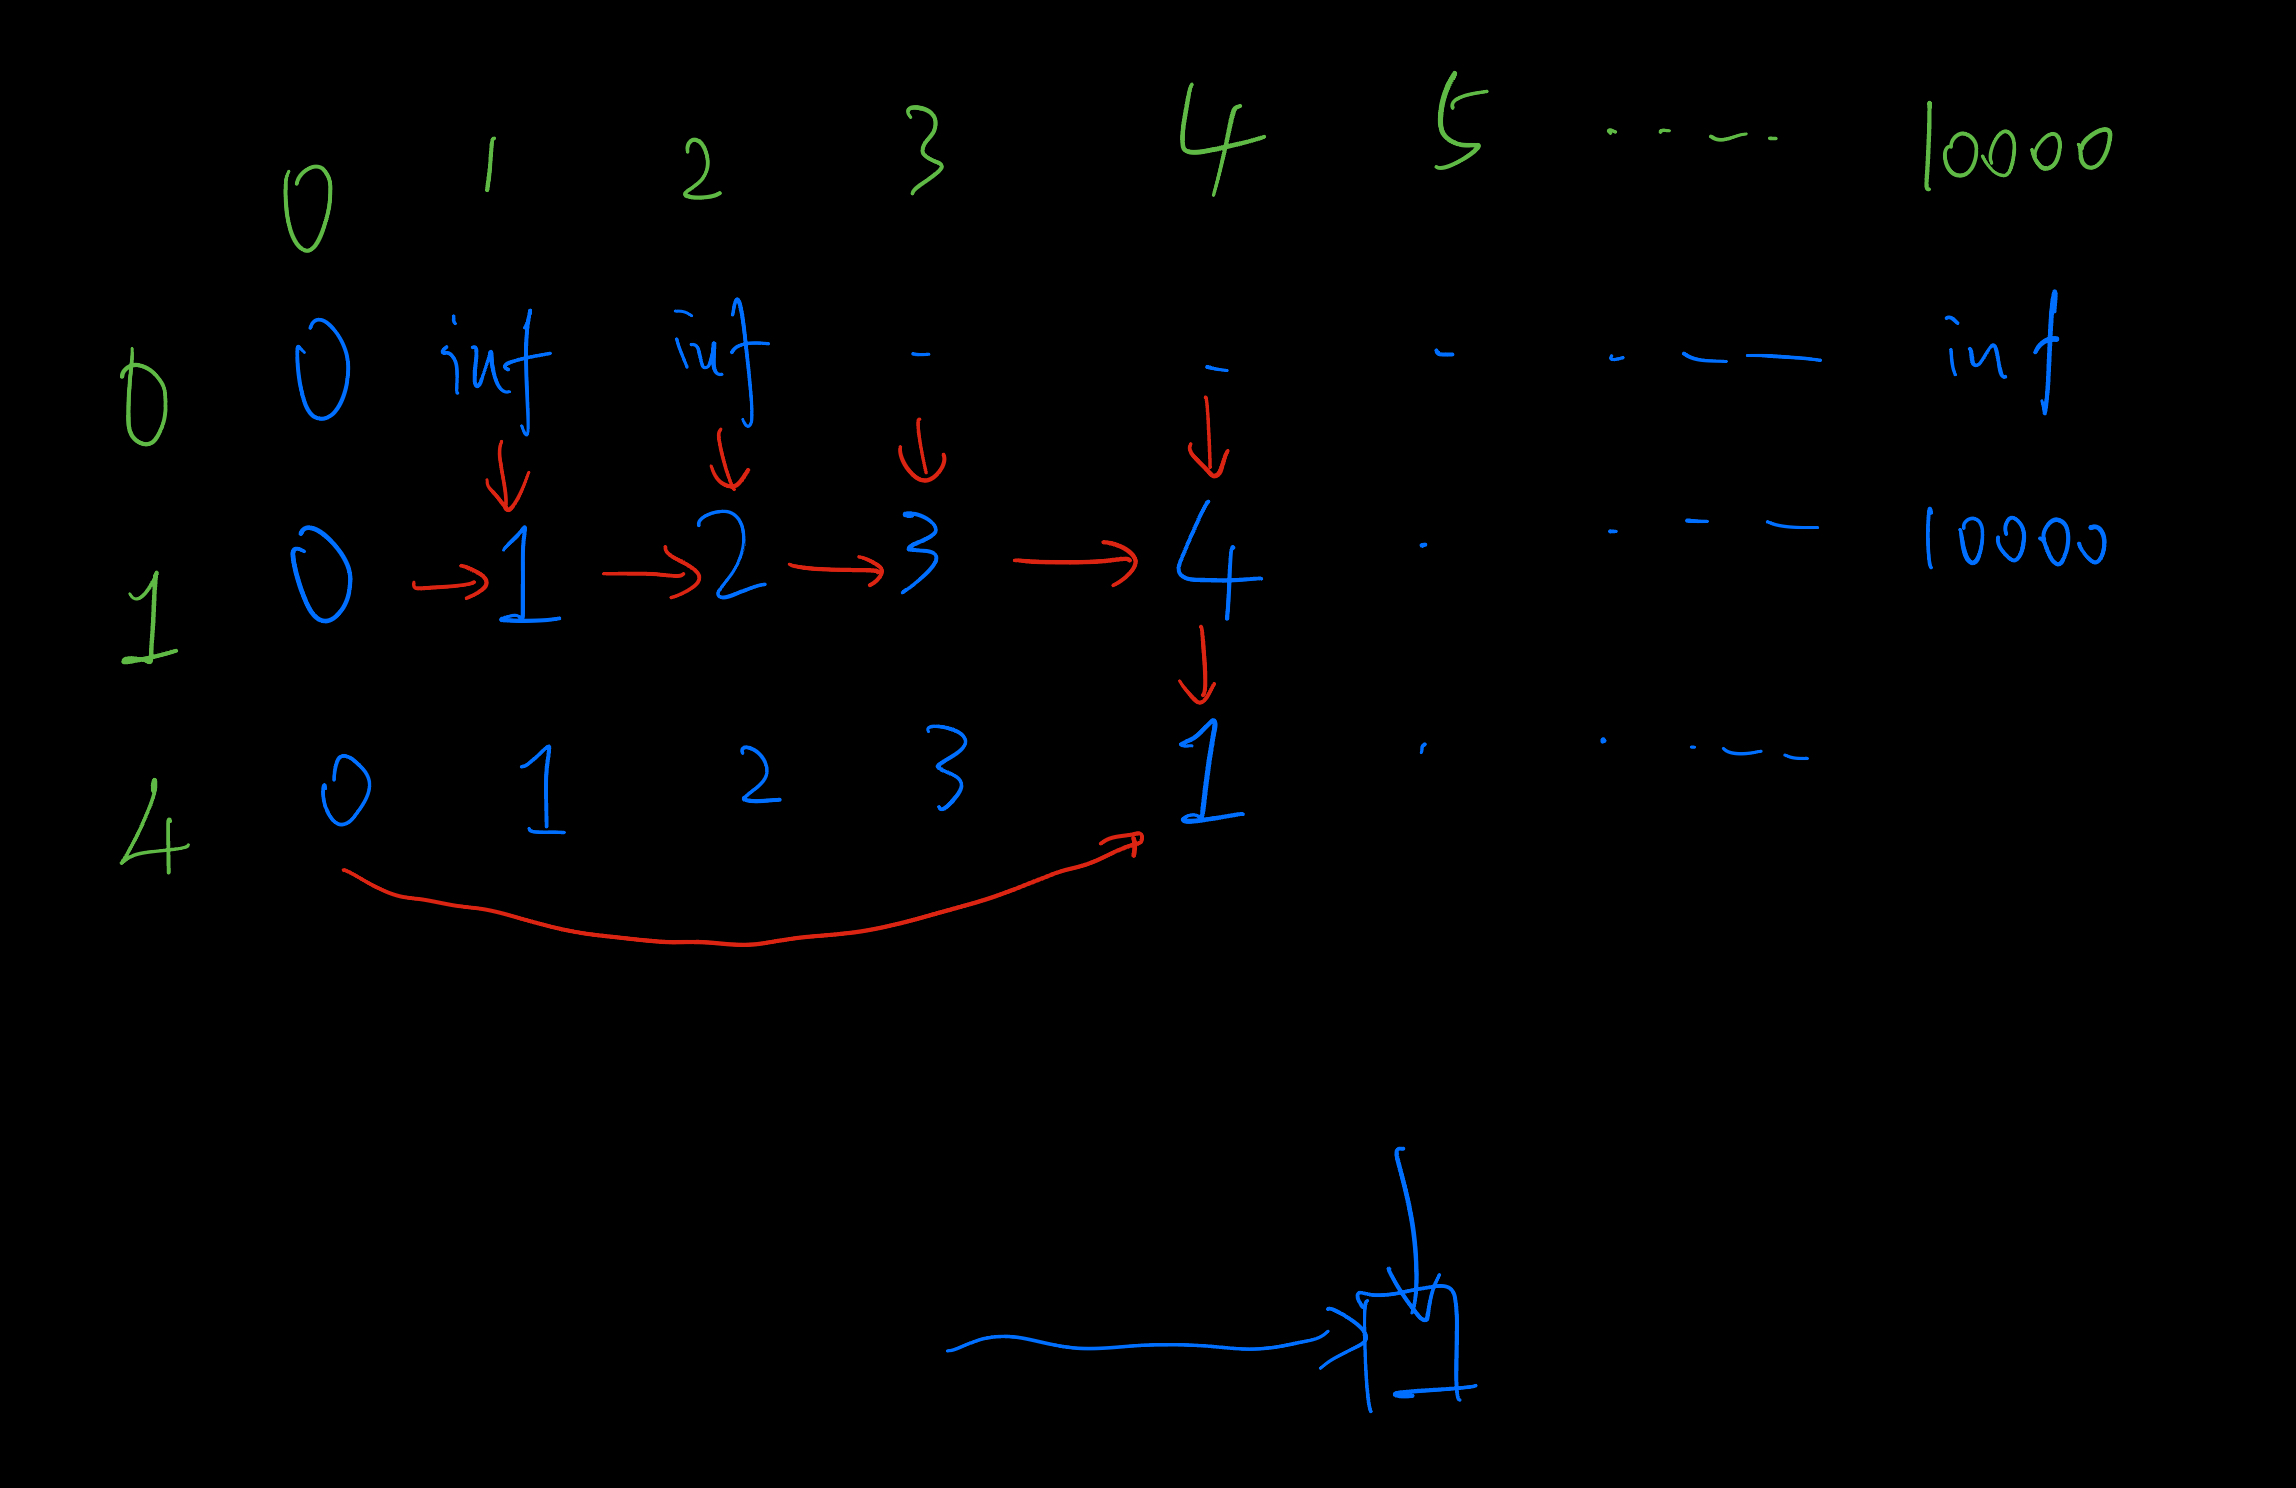 0 1 2 3 4 5 ----- 10000
0 0 inf inf - - - - -- inf
1 0 1 2 3 4 . - - - 10000
4 0 1 2 3 1 . . - - -